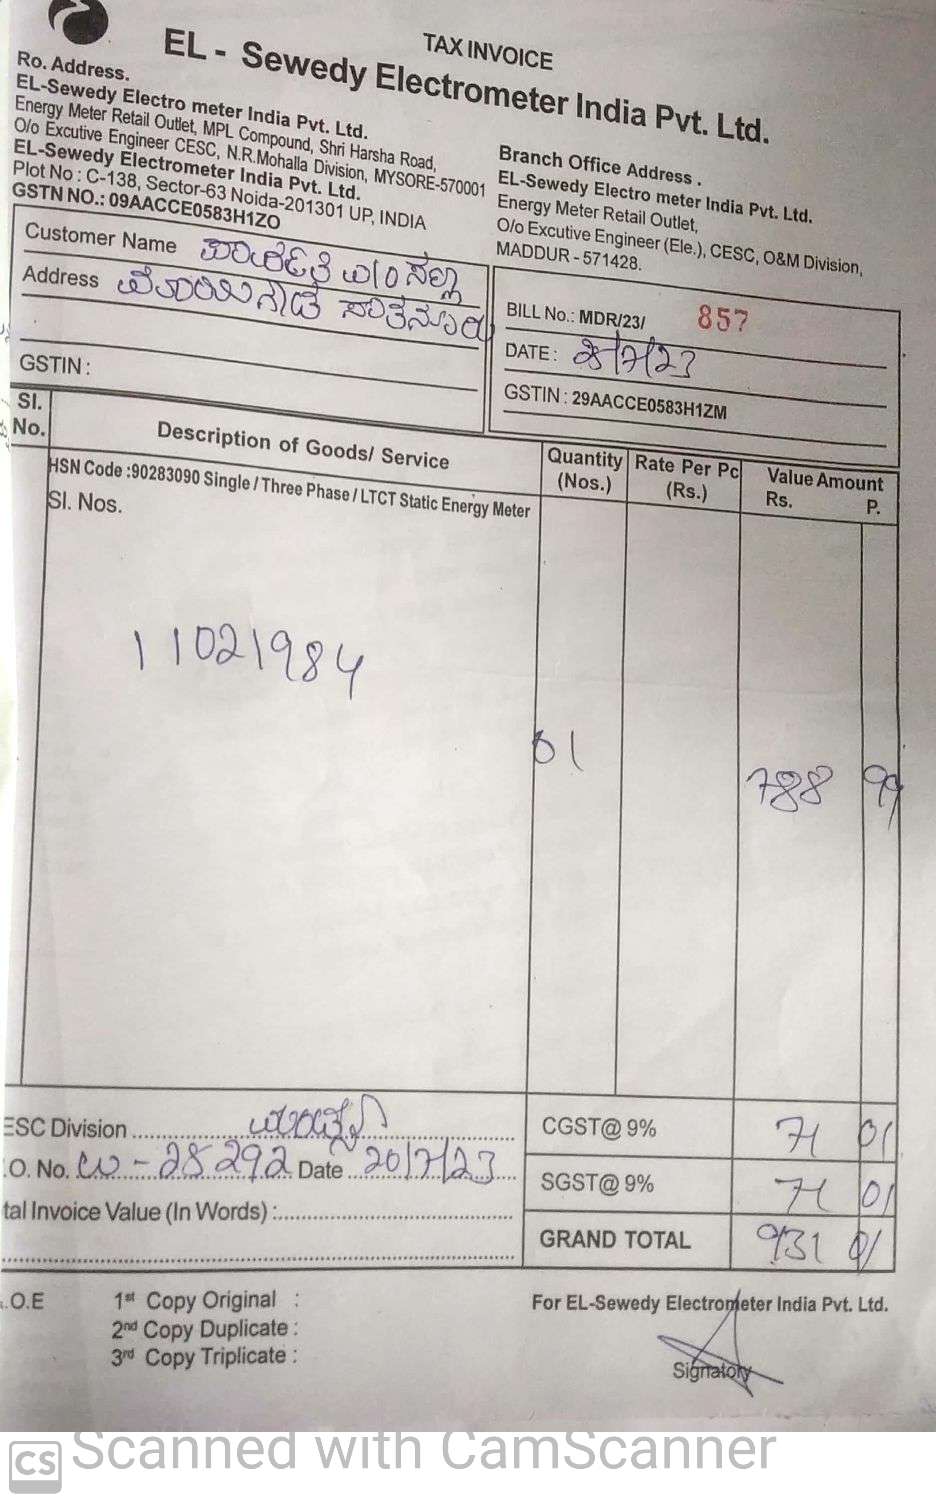 TAX INVOICE
EL - Sewedy Electrometer India Pvt. Ltd.
Ro. Address.
EL-Sewedy Electro meter India Pvt. Ltd.
Energy Meter Retail Outlet, MPL Compound, Shri Harsha Road,
O/o Excutive Engineer CESC, N.R.Mohalla Division, MYSORE-570001
EL-Sewedy Electrometer India Pvt. Ltd.
Plot No : C-138, Sector-63 Noida-201301 UP, INDIA
GSTN NO.: 09AACCE0583H1ZO
Branch Office Address .
EL-Sewedy Electro meter India Pvt. Ltd.
Energy Meter Retail Outlet,
O/o Excutive Engineer (Ele.), CESC, O&M Division,
MADDUR - 571428.
Customer Name
Address
GSTIN :
BILL No.: MDR/23/ 857
DATE : 28/7/23
GSTIN : 29AACCE0583H1ZM
Sl. No. Description of Goods/ Service Quantity (Nos.) Rate Per Pc (Rs.) Value Amount Rs. P.
HSN Code :90283090 Single / Three Phase / LTCT Static Energy Meter
Sl. Nos.
11021984
01
788 99
ESC Division
.O. No. 28292 Date 20/7/23
tal Invoice Value (In Words) :
CGST@ 9% 71 01
SGST@ 9% 71 01
GRAND TOTAL 931 01
.O.E
1st Copy Original :
2nd Copy Duplicate :
3rd Copy Triplicate :
For EL-Sewedy Electrometer India Pvt. Ltd.
Signatory
CS Scanned with CamScanner